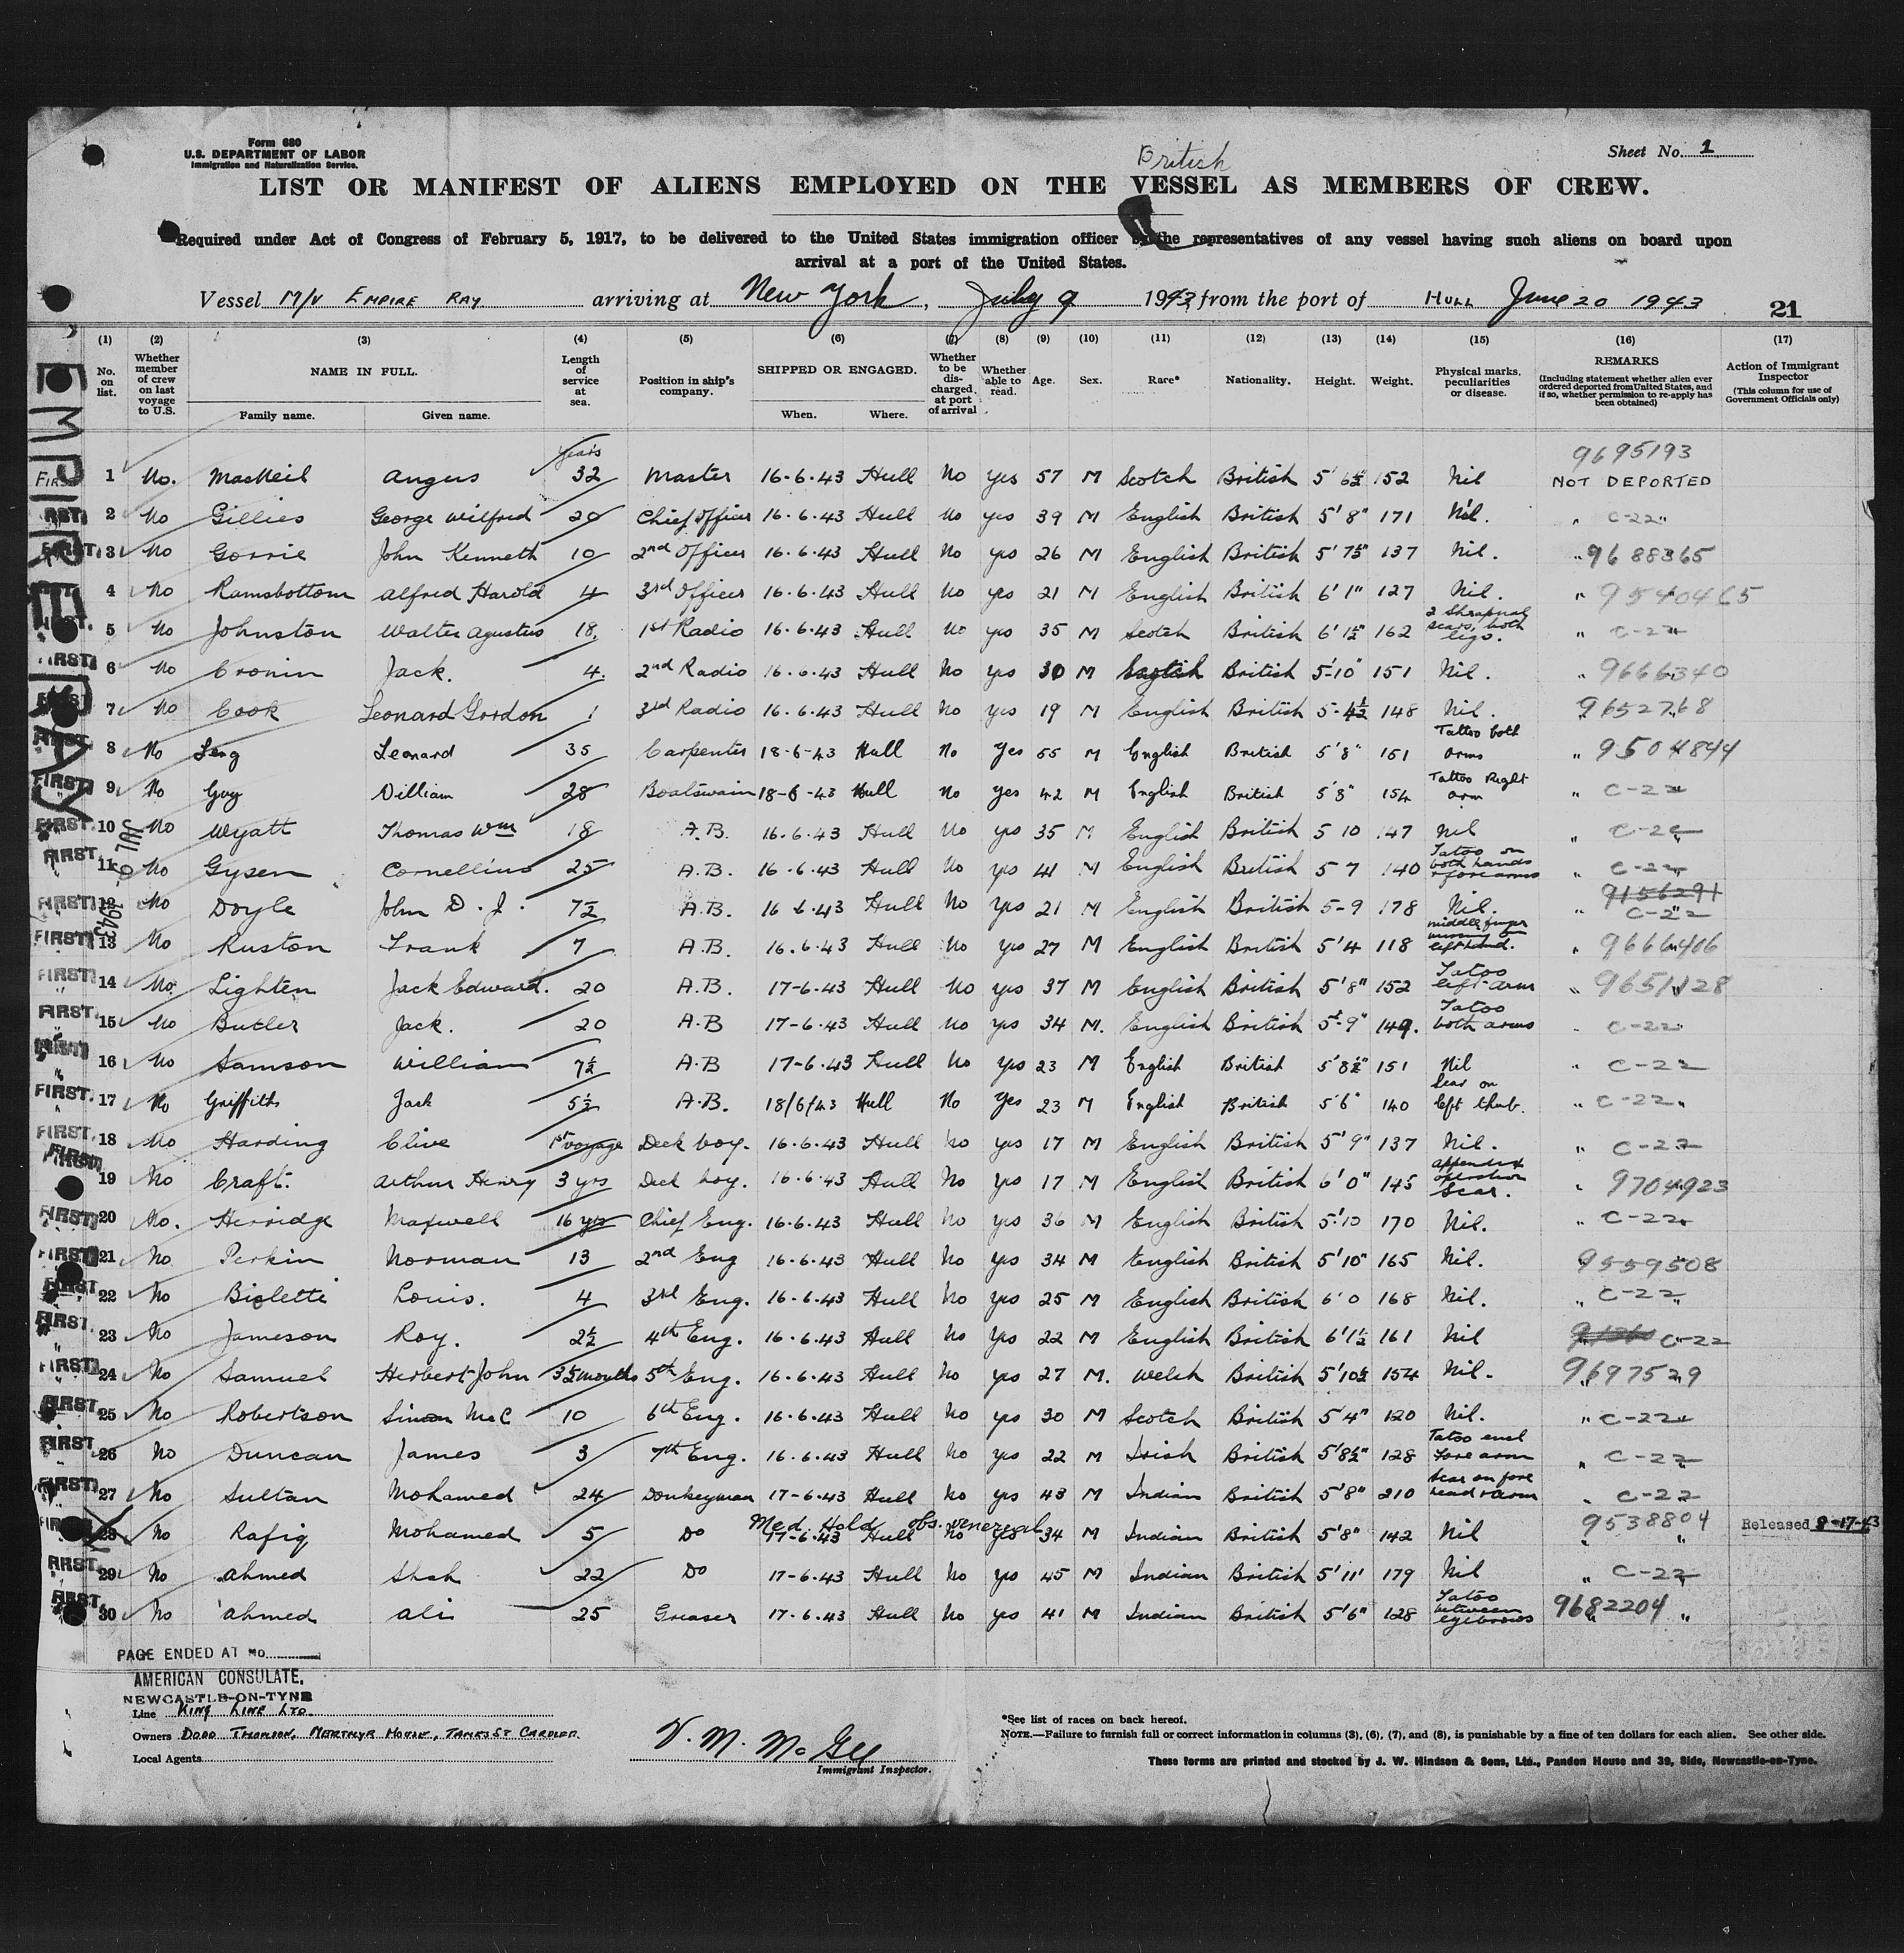 Form 680
U.S. DEPARTMENT OF LABOR
Immigration and Naturalization Service.
Sheet No. 1
British
LIST OR MANIFEST OF ALIENS EMPLOYED ON THE VESSEL AS MEMBERS OF CREW.
Required under Act of Congress of February 5, 1917, to be delivered to the United States immigration officer by the representatives of any vessel having such aliens on board upon
arrival at a port of the United States.
Vessel M/V EMPIRE RAY arriving at New York, July 9 1943 from the port of HULL June 20 1943
21
EMPIRE RAY
JUL 9- 1943
(1) (2) (3) (4) (5) (6) (7) (8) (9) (10) (11) (12) (13) (14) (15) (16) (17)
No. on list. Whether member of crew on last voyage to U.S. NAME IN FULL. Family name. Given name. Length of service at sea. Position in ship's company. SHIPPED OR ENGAGED. When. Where. Whether to be discharged at port of arrival Whether able to read. Age. Sex. Race* Nationality. Height. Weight. Physical marks, peculiarities or disease. REMARKS (Including statement whether alien ever ordered deported from United States, and if so, whether permission to re-apply has been obtained) Action of Immigrant Inspector (This column for use of Government Officials only)
years 9695193
FIRST 1 No. MacNeil Angus 32 Master 16-6-43 Hull No yes 57 M Scotch British 5' 6½ 152 Nil NOT DEPORTED
2 No Gillies George Wilfred 20 Chief Officer 16-6-43 Hull No yes 39 M English British 5' 8" 171 Nil. " C-22 "
FIRST. 3 No Gorrie John Kenneth 10 2nd Officer 16-6-43 Hull No yes 26 M English British 5' 7½" 137 Nil. " 9688365
4 No Ramsbottom Alfred Harold 4 3rd Officer 16-6-43 Hull No yes 21 M English British 6' 1" 127 Nil. " 9540465
5 No Johnston Walter Agustus 18. 1st Radio 16-6-43 Hull No yes 35 M Scotch British 6' 1½" 162 2 Shrapnel scars, both legs. " C-22
FIRST 6 No Cronin Jack. 4. 2nd Radio 16-6-43 Hull No yes 30 M British 5-10" 151 Nil. " 9666340
7 No Cook Leonard Gordon 1 3rd Radio 16-6-43 Hull No yes 19 M English British 5-4½ 148 Nil. " 9652768
FIRST 8 No Leonard 35 Carpenter 18-6-43 Hull No Yes 55 M English British 5'8" 151 Tattoo both arms " 9504844
FIRST 9 No Guy William 28 Boatswain 18-6-43 Hull No Yes 42 M English British 5'8" 154 Tattoo Right arm " C-22
FIRST. 10 No Wyatt Thomas Wm 18 A.B. 16-6-43 Hull No yes 35 M English British 5 10 147 Nil " C-22
FIRST. 11 No Gysen Cornellius 25 A.B. 16-6-43 Hull No yes 41 M English British 5 7 140 Tatoo on both hands + forearms " C-22
FIRST 12 No Doyle John D. J. 7½ A.B. 16 6-43 Hull No Yes 21 M English British 5-9 178 Nil. " 9156291 C-22
FIRST 13 No Ruston Frank 7 A.B. 16-6-43 Hull No Yes 27 M English British 5'4 118 middle finger missing on left hand. " 9666406
FIRST 14 No. Lighten Jack Edward. 20 A.B. 17-6-43 Hull No yes 37 M English British 5'8" 152 Tatoo left arm " 9651128
FIRST 15 No Butler Jack. 20 A.B 17-6-43 Hull No yes 34 M. English British 5'-9" 149. Tatoo both arms " C-22
16 No Samson William 7½ A.B 17-6-43 Hull No Yes 23 M English British 5'8½" 151 Nil " C-22
FIRST. 17 No Griffiths Jack 5½ A.B. 18/6/43 Hull No Yes 23 M English British 5'6" 140 Scar on left thub. " C-22 "
FIRST 18 No Harding Clive 1st voyage Deck boy. 16-6-43 Hull No yes 17 M English British 5' 9" 137 Nil. " C-22
FIRST 19 No Craft. Arthur Henry 3 yrs Deck boy. 16-6-43 Hull No yes 17 M English British 6' 0" 145 appendix operation Scar. " 9704923
FIRST 20 No. Herridge Maxwell 16 yrs Chief Eng. 16-6-43 Hull No yes 36 M English British 5'10 170 Nil. " C-22
FIRST 21 No Perkin Norman 13 2nd Eng 16-6-43 Hull No Yes 34 M English British 5'10" 165 Nil. 9559508
FIRST 22 No Bioletti Louis. 4 3rd Eng. 16-6-43 Hull No yes 25 M English British 6'0 168 Nil. " C-22 "
FIRST. 23 No Jameson Roy. 2½ 4th Eng. 16-6-43 Hull No Yes 22 M English British 6'1½ 161 Nil C-22
FIRST 24 No Samuel Herbert John 3½ months 5th Eng. 16-6-43 Hull No yes 27 M. Welch British 5'10½ 154 Nil. 9697529
FIRST. 25 No Robertson Simon McC 10 6th Eng. 16-6-43 Hull No yes 30 M Scotch British 5'4" 120 Nil. " C-22
FIRST 26 No Duncan James 3 7th Eng. 16-6-43 Hull No Yes 22 M Irish British 5'8½" 128 Tatoo fore arm " C-22
FIRST 27 No Sultan Mohamed 24 Donkeyman 17-6-43 Hull No yes 43 M Indian British 5'8" 210 Scar on fore head + arm " C-22
Med. Hold obs. venereal
28 No Rafiq Mohamed 5 Do 17-6-43 Hull No yes 34 M Indian British 5'8" 142 Nil 9538804 Released 8-17-43
FIRST. 29 No Ahmed Shah 22 Do 17-6-43 Hull No yes 45 M Indian British 5'11' 179 Nil " C-22
FIRST. 30 No Ahmed Ali 25 Greaser 17-6-43 Hull No yes 41 M Indian British 5'6" 128 Tatoo between eyebrows 9682204 "
PAGE ENDED AT No.
AMERICAN CONSULATE,
NEWCASTLE-ON-TYNE
Line KING LINE LTD.
Owners DODD THOMSON, MERTHYR HOUSE, JAMES ST CARDIFF.
Local Agents
V. M. McGy
Immigrant Inspector.
*See list of races on back hereof.
NOTE.—Failure to furnish full or correct information in columns (3), (6), (7), and (8), is punishable by a fine of ten dollars for each alien. See other side.
These forms are printed and stocked by J. W. Hindson & Sons, Ltd., Pandon House and 39, Side, Newcastle-on-Tyne.